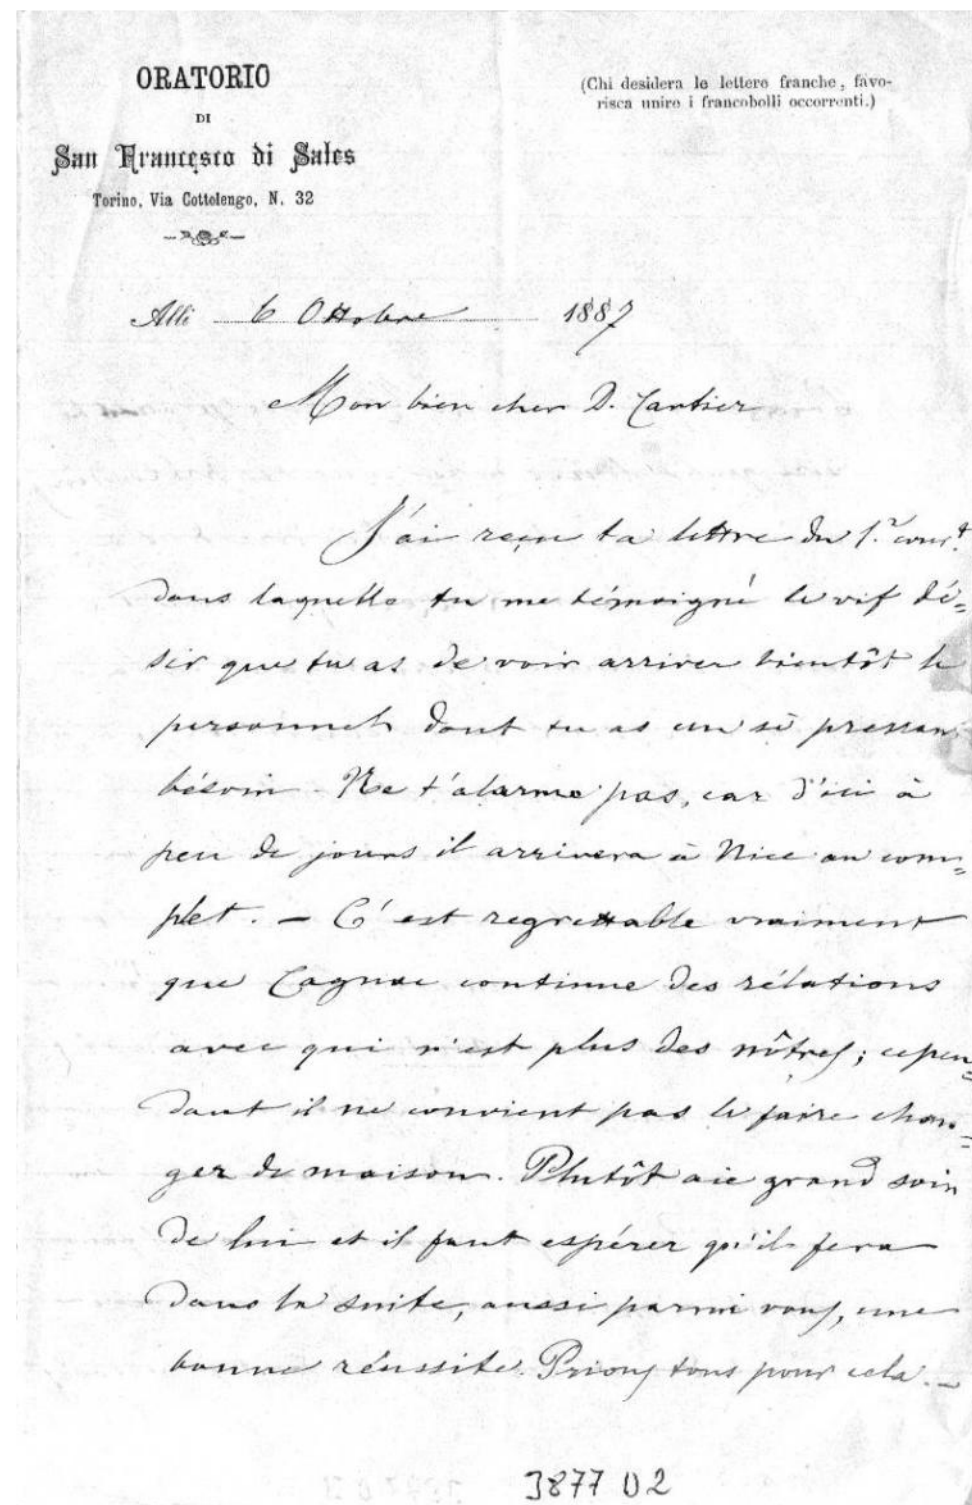 ORATORIO
DI
San Francesco di Sales
Torino, Via Cottolengo, N. 32
(Chi desidera le lettere franche, favo-
risca unire i francobolli occorrenti.)
Alli 6 Ottobre 1887
Mon bien cher D. Cartier
J'ai reçu ta lettre du 1.r cour.t
dans laquelle tu me témoigné le vif dé=
sir que tu as de voir arriver bientôt le
personnel dont tu as un si pressan
bésoin. Ne t'alarme pas, car d'ici à
peu de jours il arrivera à Nice au com=
plet. — C'est regrettable vraiment
que Cagnac continue des rélations
avec qui n'est plus des nôtres; cepen=
dant il ne convient pas le faire chan=
ger de maison. Plutôt aie grand soin
de lui et il faut espérer qu'il fera
dans la suite, aussi parmi vous, une
bonne réussite. Prions tous pour cela. —
3877 D 2